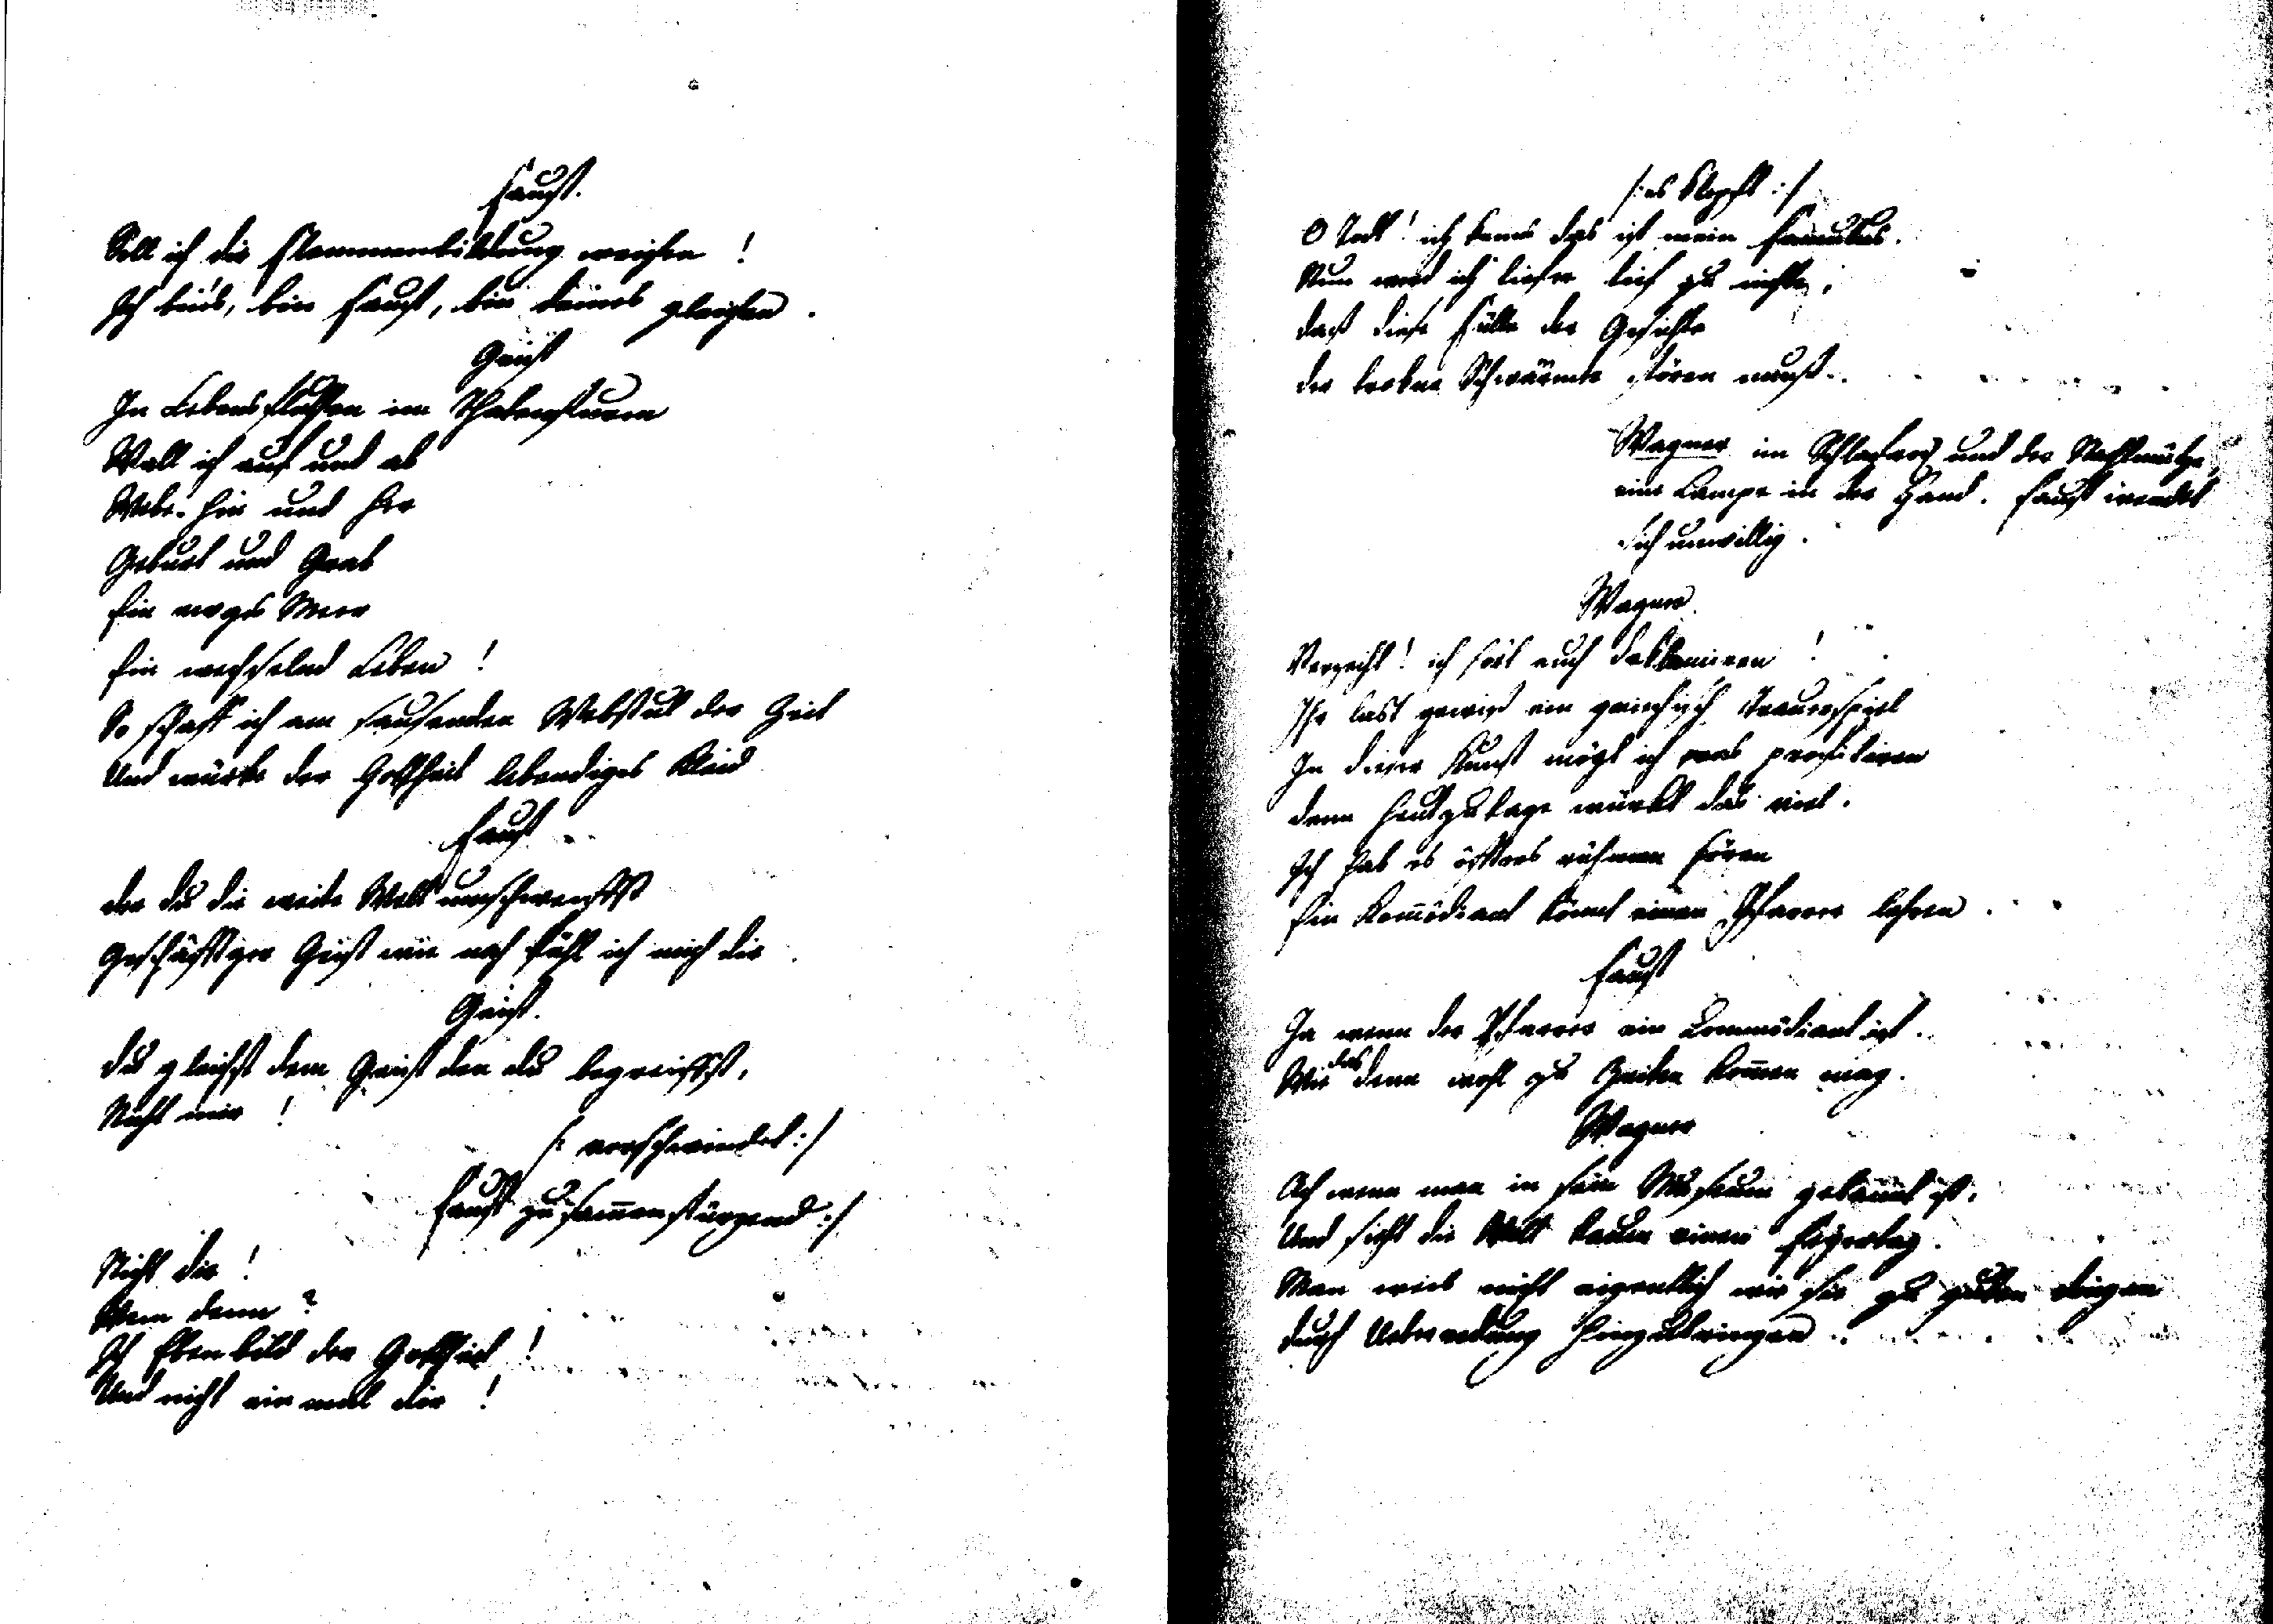 Faust.
Soll ich dir Flammenbildung weichen!
Ich binns, bin Faust, bin deines gleichen.
Geist
In Lebensfluthen im Thatensturm
Wall ich auf und ab
Webe hin und her
Geburt und Grab
Ein ewges Meer
Ein wechselnd Leben!
So schaff ich am sausenden Webstul der Zeit
Und würcke der Gottheit lebendiges Kleid
Faust
der du die weite Welt umschweiffst
Geschäfftger Geist wie nah fühl ich mich dir.
Geist.
du gleichst dem Geist den du begreiffst,
Nicht mir!
/: verschwindet :/
Faust zusam̄enstürzend :/
Nicht dir!
Wem denn?
Ich Ebenbild der Gottheit!
Und nicht einmal dir!
/: es klopft :/
O Todt! ich kenns das ist mein Famulus.
Nun werd ich tiefer tief zu nichte,
daß diese Fülle der Gesichte
der trokne Schwärmer stören muß.
Wagner im Schlafrock und der Nachtmütze,
eine Lampe in der Hand. Faust wendet
sich unwillig.
Wagner.
Verzeiht! ich hört euch deklamiren!
Ihr last gewiss ein griechisch Trauerspiel
In dieser Kunst mögt ich was profitiren
denn heutzutage würckt das viel.
Ich hab es öffters rühmen hören
Ein Kom̄ödiant könnt einen Pfarrer lehren.
Faust
Ja wenn der Pfarrer ein Kommödiant ist.
Wie das denn wohl zu Zeiten kom̄en mag.
Wagner
Ach wenn man in sein Museum gebannt ist,
Und sieht die Welt kaum einen Feyertag.
Man weis nicht eigentlich wie sie zu guten dingen
durch Ueberredung hinzubringen.